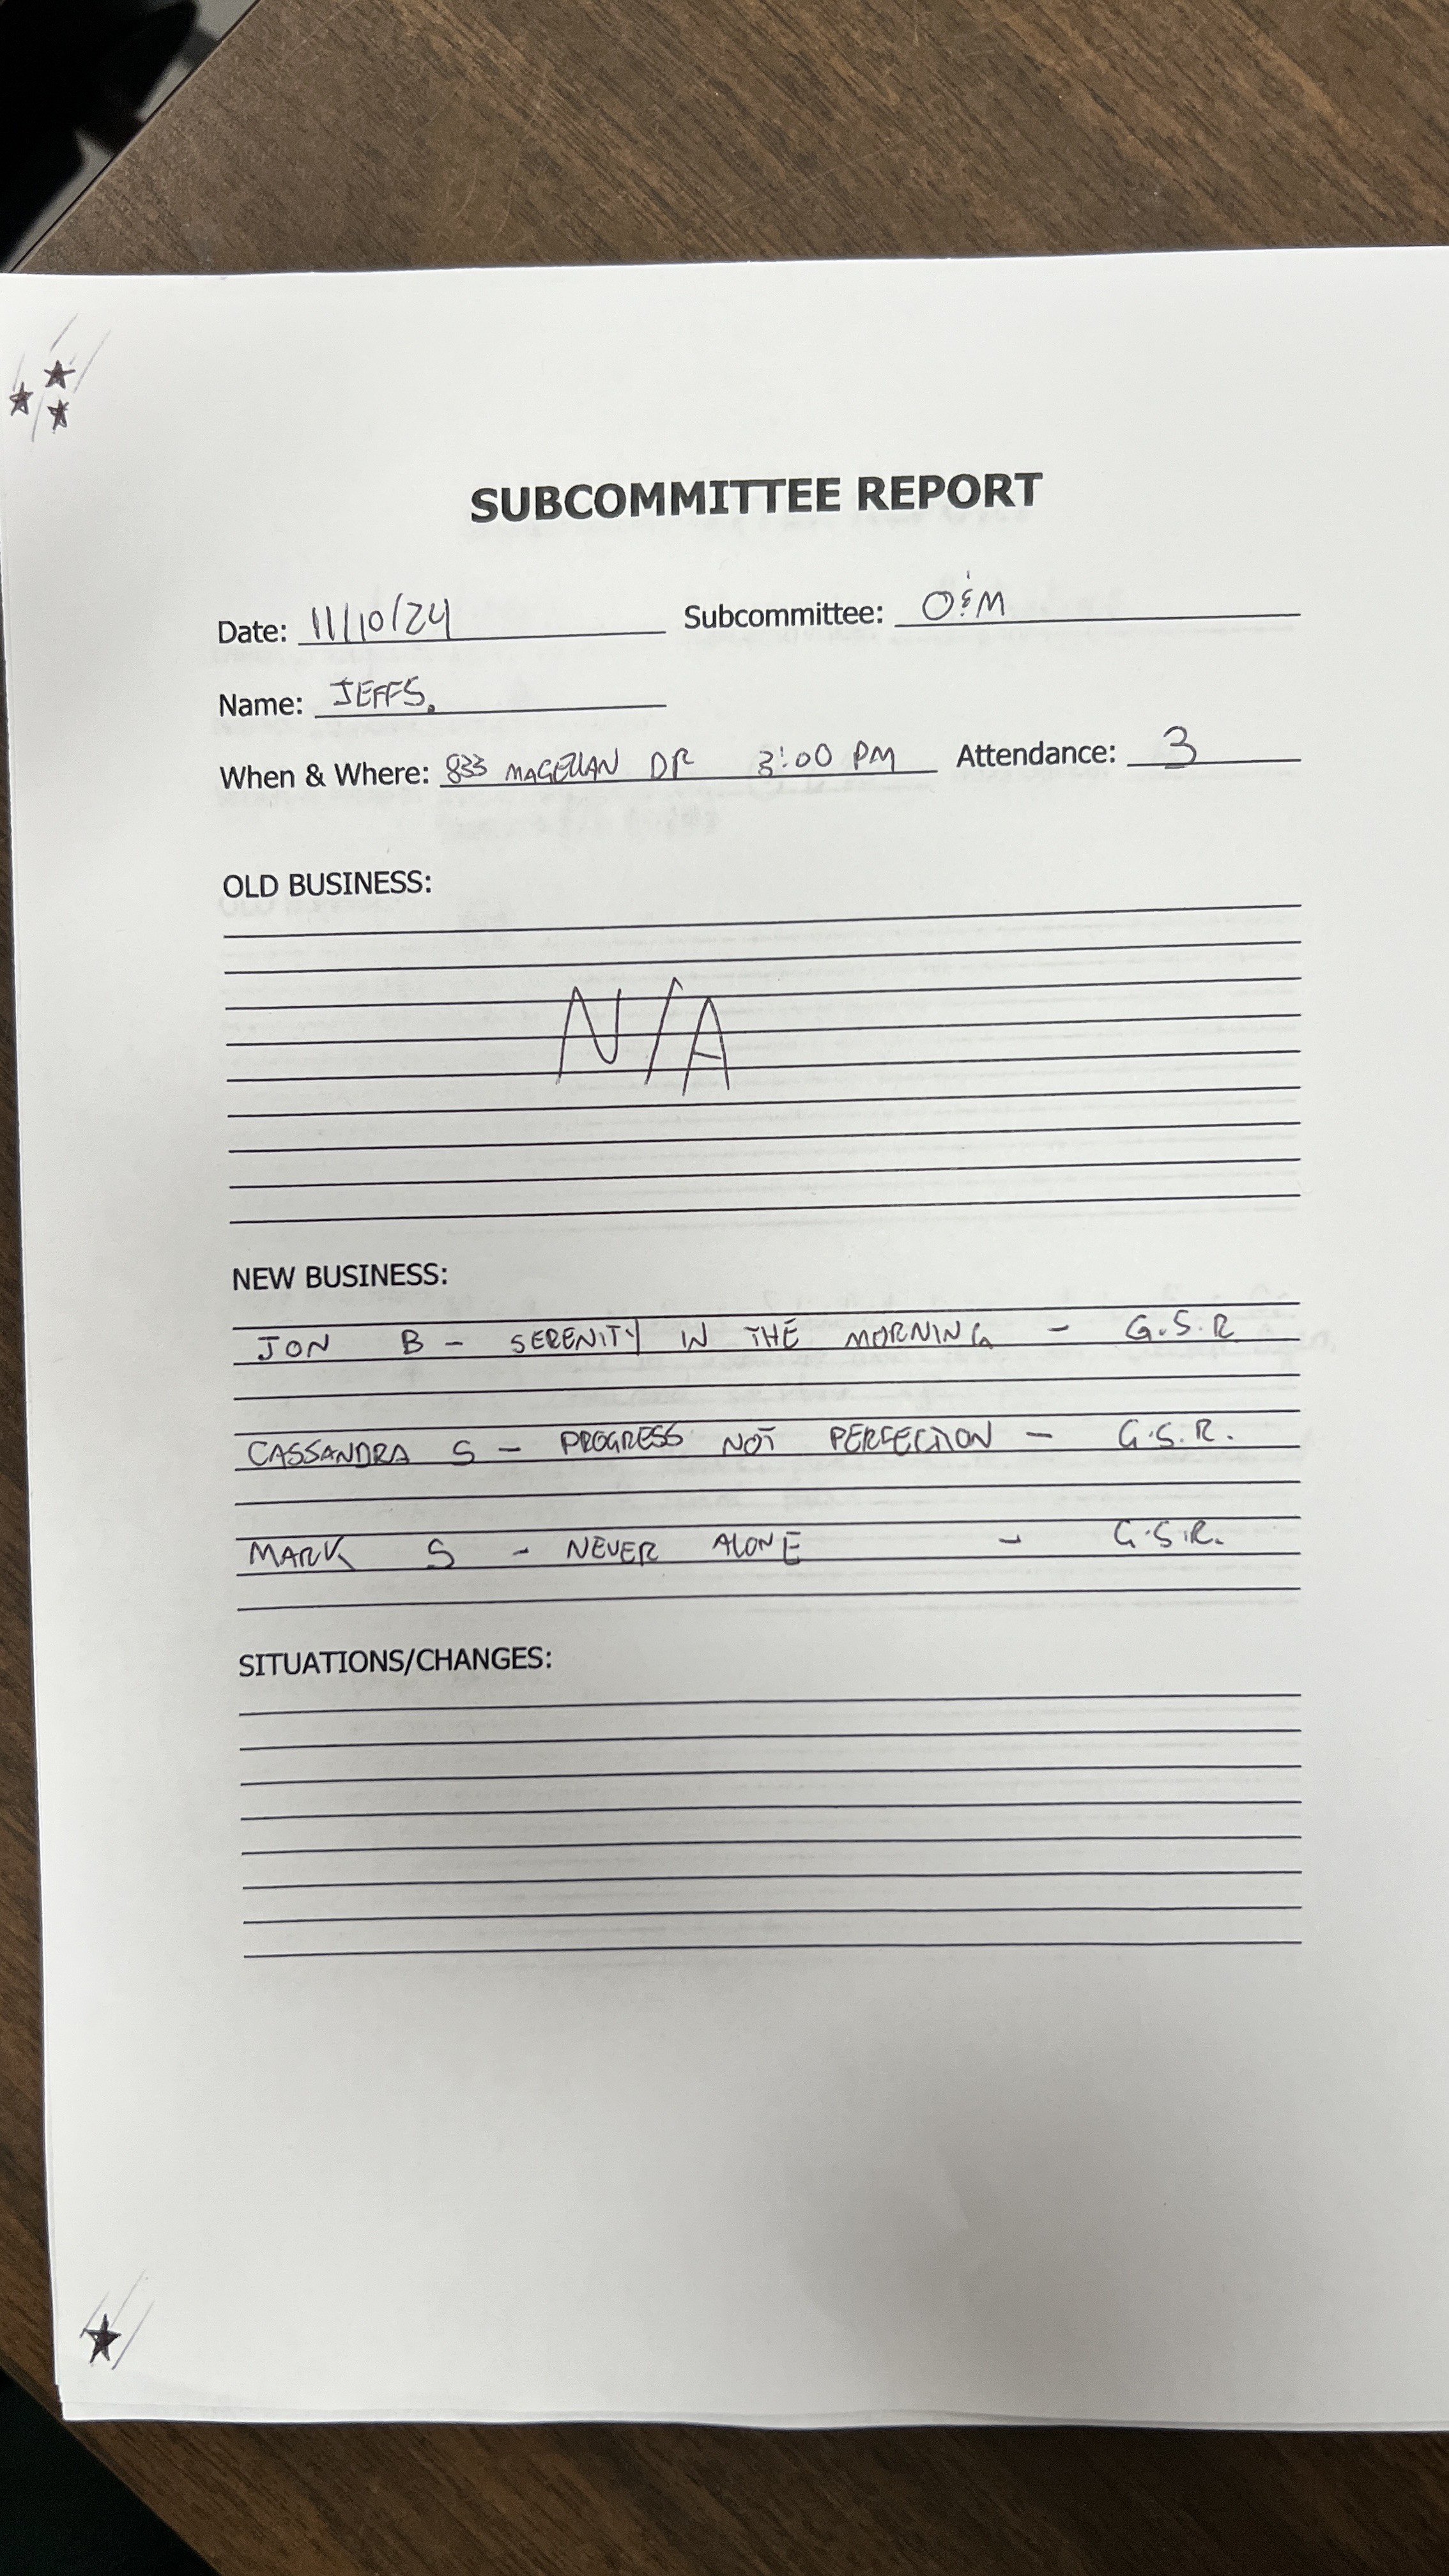 SUBCOMMITTEE REPORT
Date: 11/10/24 Subcommittee: O&M
Name: JEFF S.
When & Where: 833 MAGELLAN DR 3:00 PM Attendance: 3
OLD BUSINESS:
N/A
NEW BUSINESS:
JON B - SERENITY IN THE MORNING - G.S.R
CASSANDRA S - PROGRESS NOT PERFECTION - G.S.R.
MARK S - NEVER ALONE - G.S.R.
SITUATIONS/CHANGES: